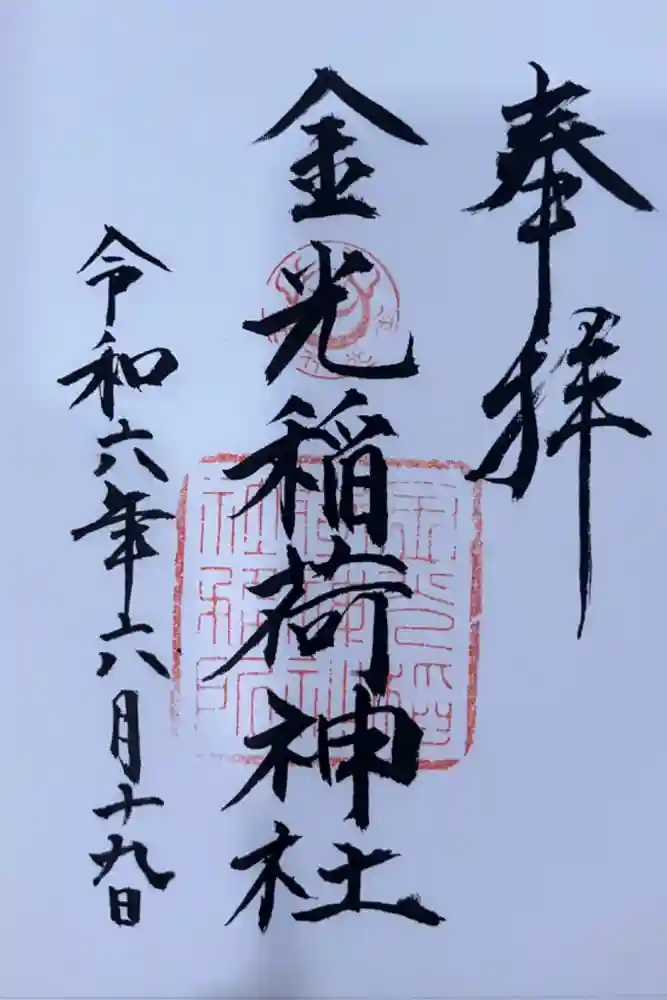 奉拝
金光稲荷神社
令和六年六月十九日